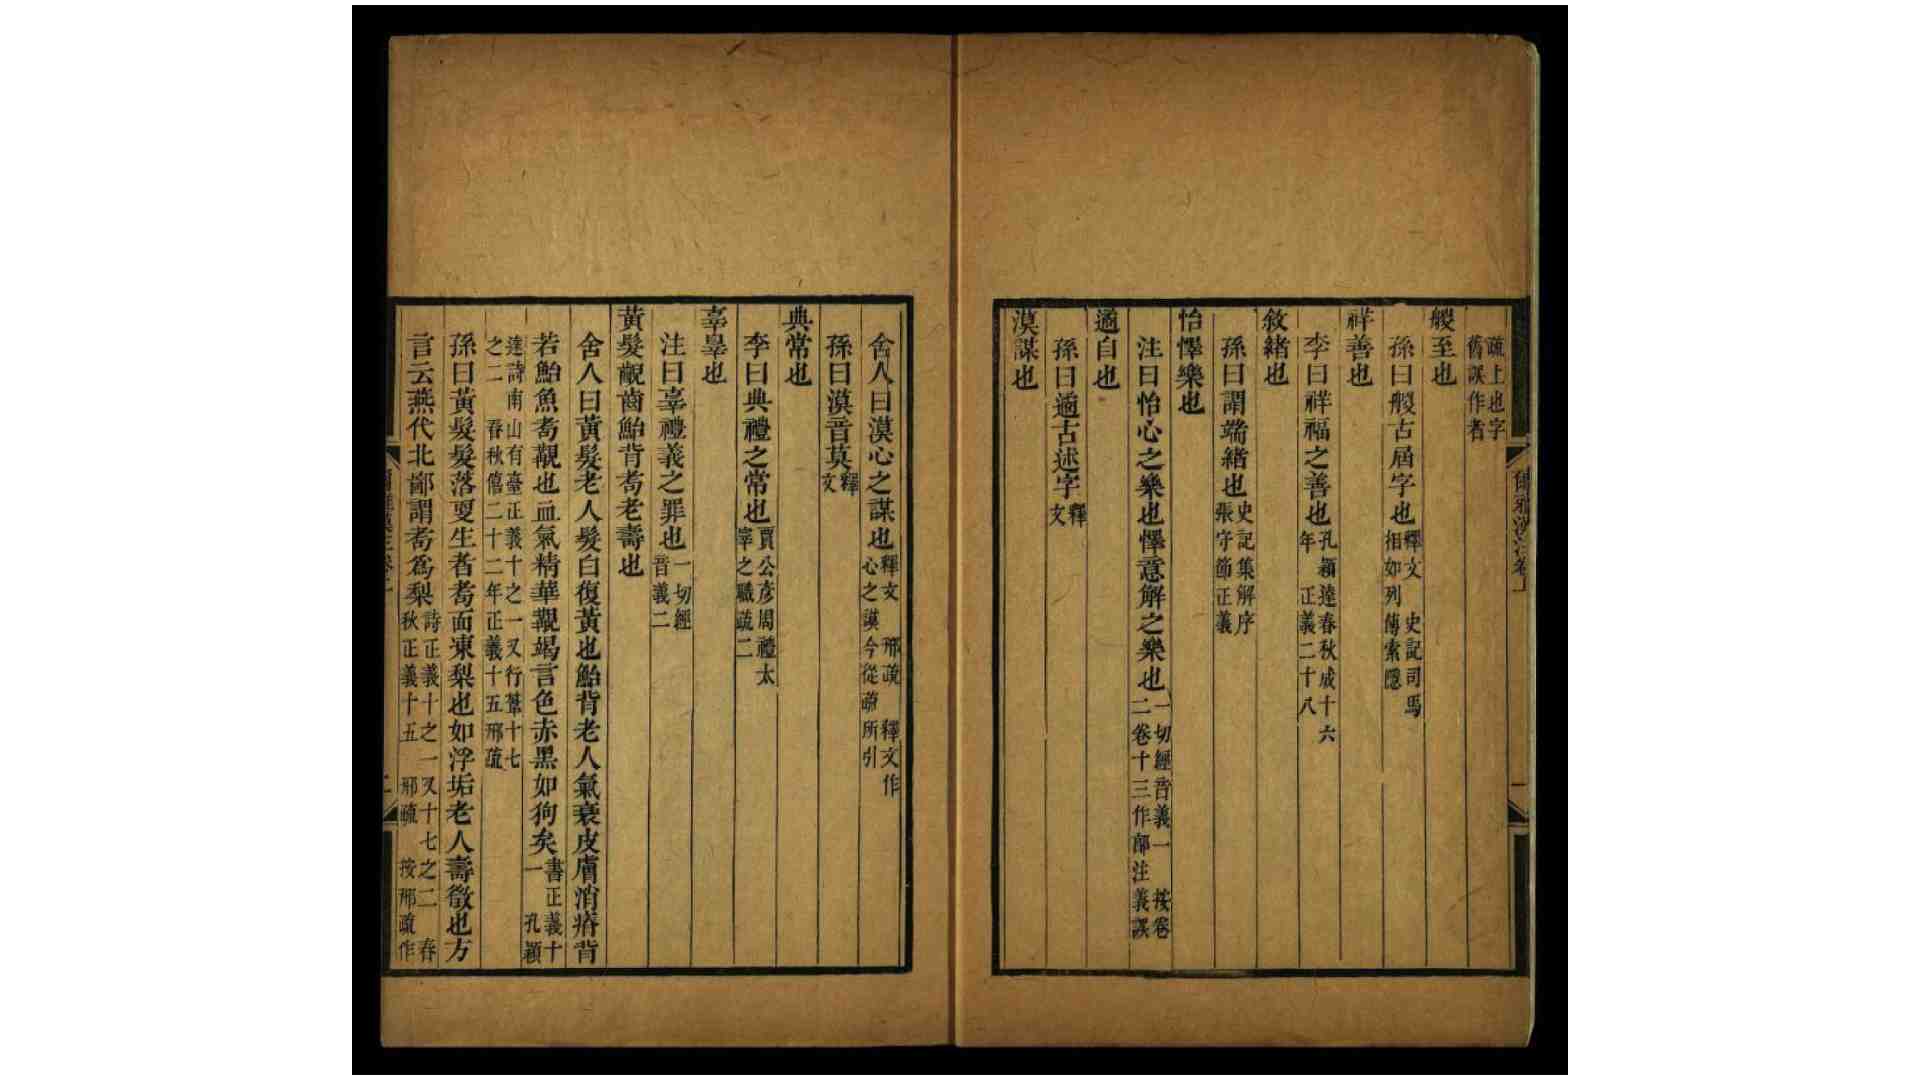 疏上也字
舊誤作者
艐至也
孫曰艐古屆字也釋文　史記司馬
相如列傳索隱
祥善也
李曰祥福之善也孔穎達春秋成十六
年　正義二十八
敘緒也
孫曰謂端緒也史記集解序
張守節正義
怡懌樂也
注曰怡心之樂也懌意解之樂也一切經音義一　按卷
二卷十三作郭注義誤
遹自也
孫曰遹古述字釋
文
漠謀也
爾雅漢注卷上
一
舍人曰漠心之謀也釋文　邢疏　釋文作
心之謨今從疏所引
孫曰漠音莫釋
文
典常也
李曰典禮之常也賈公彥周禮太
宰之職疏二
辜辠也
注曰辜禮義之罪也一切經
音義二
黃髮齯齒鮐背耇老壽也
舍人曰黃髮老人髮白復黃也鮐背老人氣衰皮膚消瘠背
若鮐魚耇覯也血氣精華覯竭言色赤黑如狗矣書正義十
一　孔穎
達詩南山有臺正義十之一又行葦十七
之二　春秋僖二十二年正義十五邢疏
孫曰黃髮髮落更生者耇面凍梨也如浮垢老人壽徵也方
言云燕代北鄙謂耇爲梨詩正義十之一又十七之二　春
秋正義十五　邢疏　按邢疏作